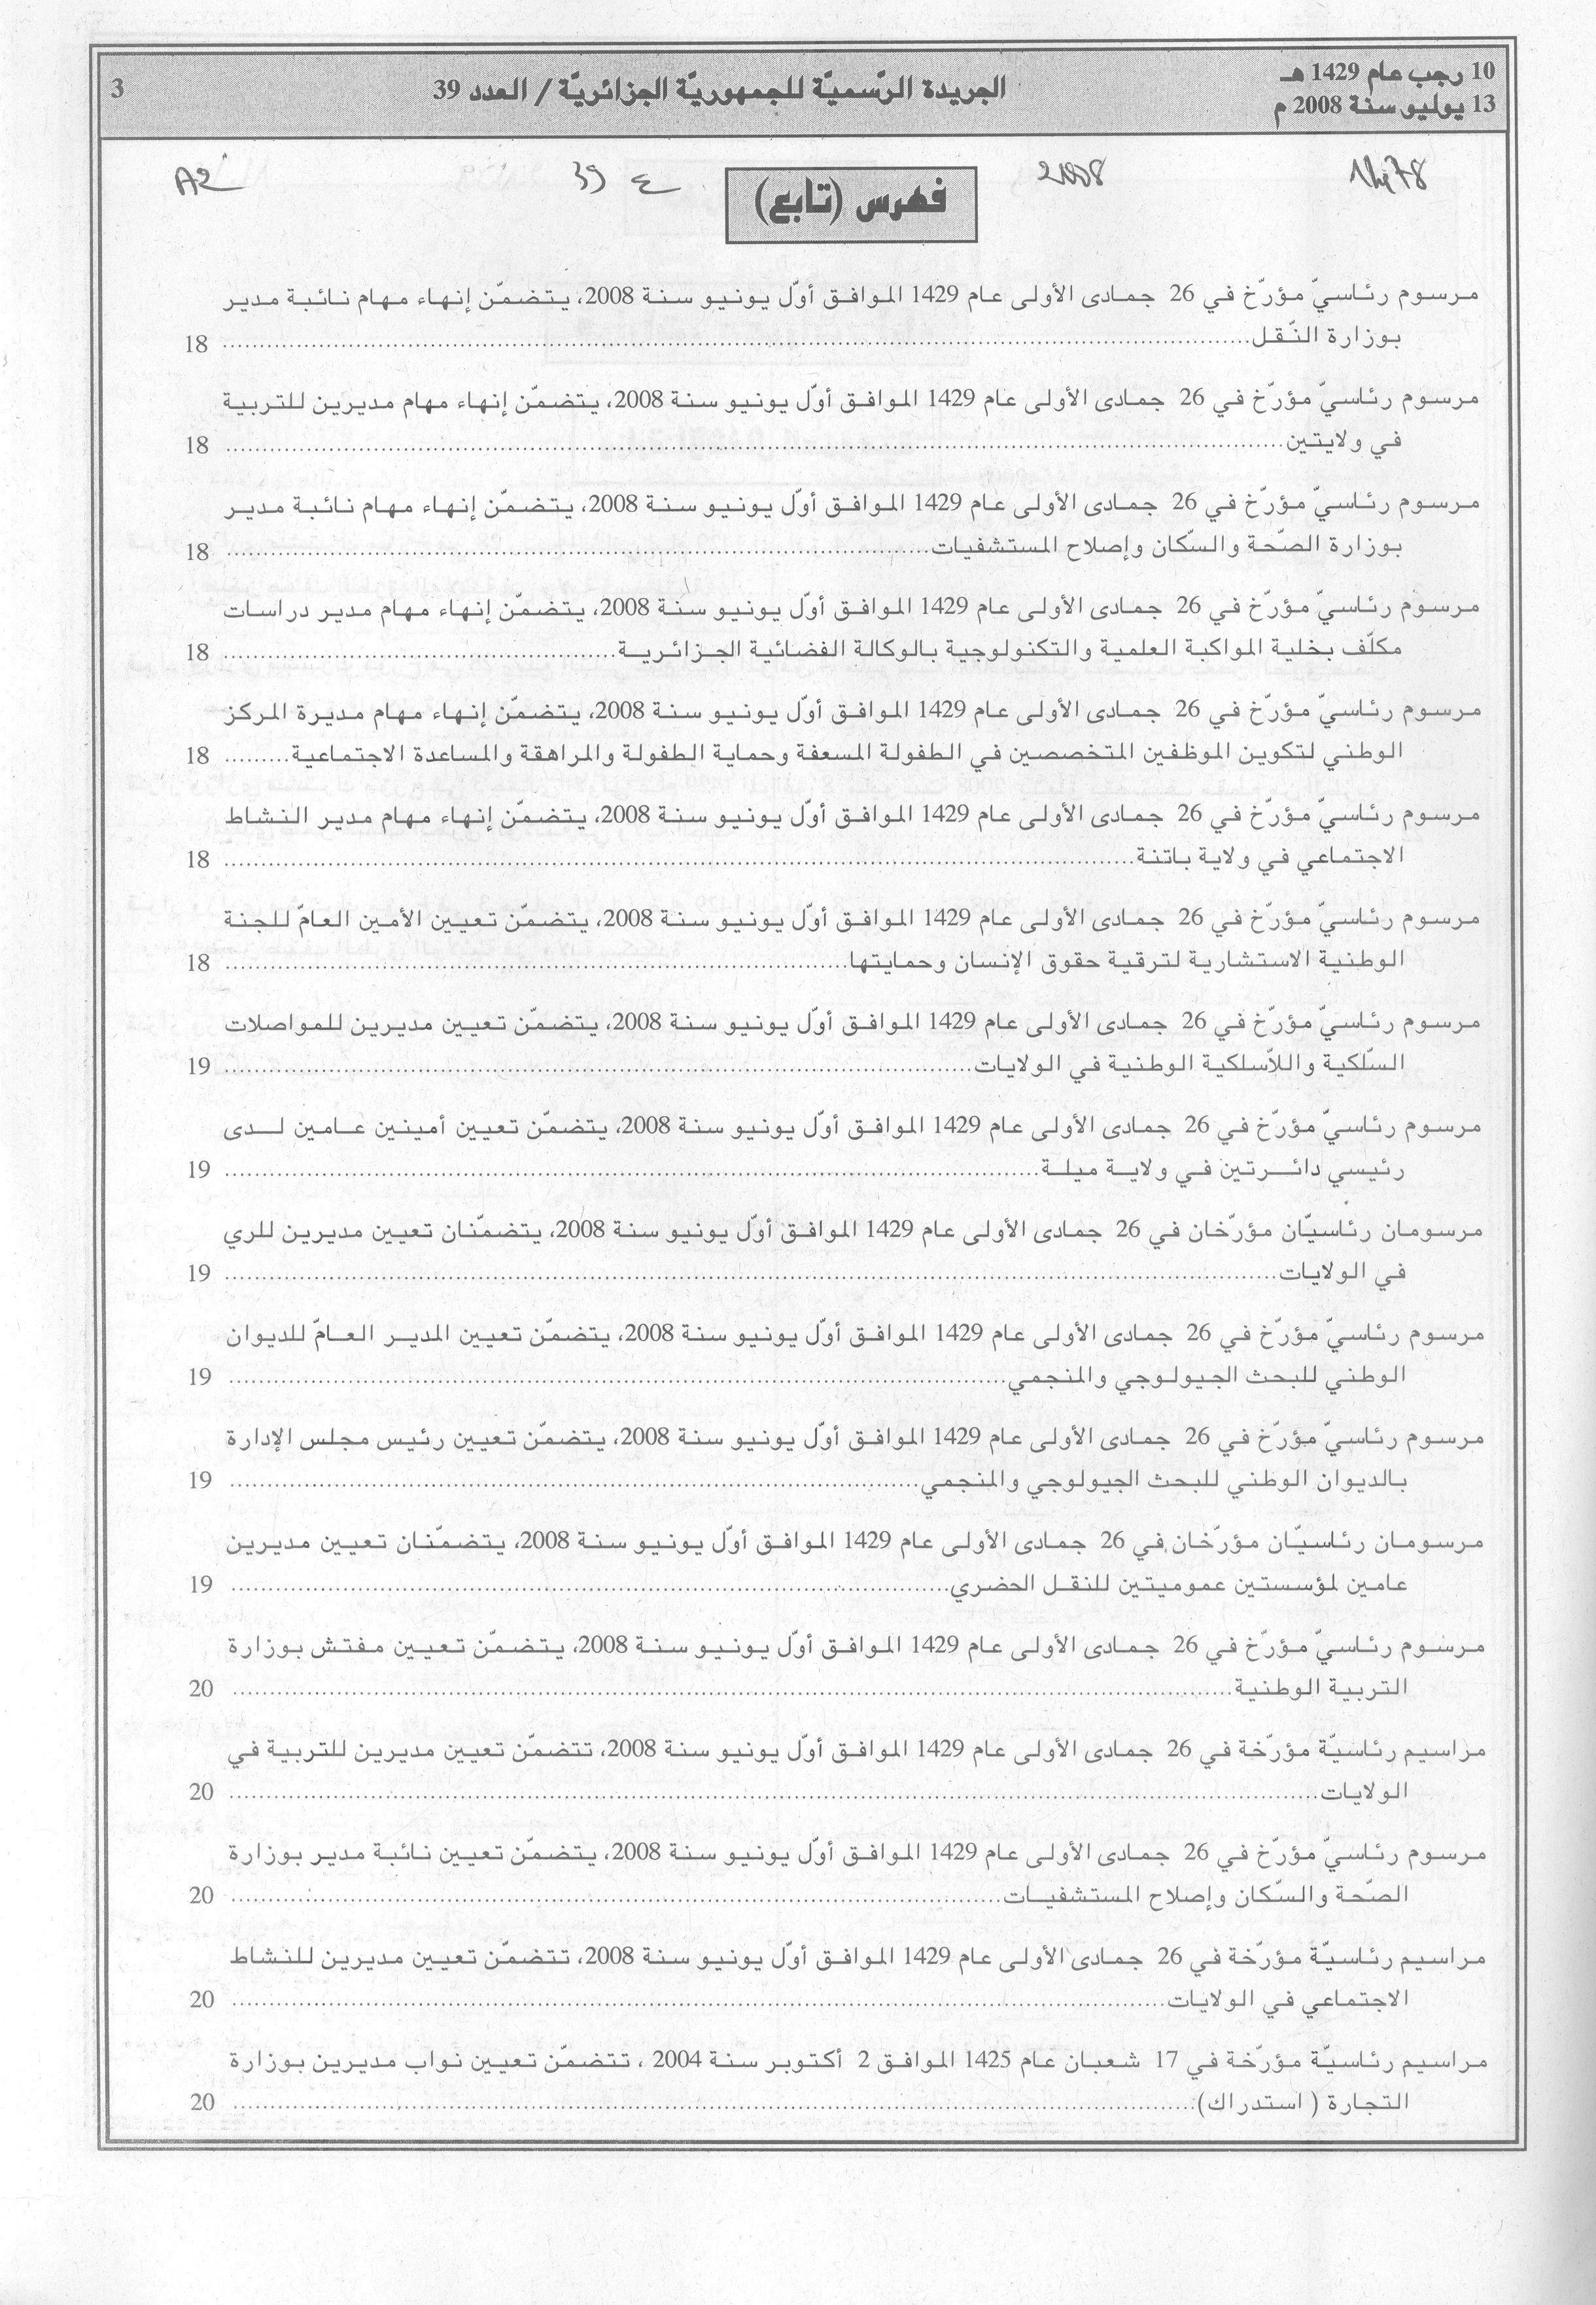 10 رجب عام 1429 هـ
13 يوليو سنة 2008 م
الجريدة الرّسميّة للجمهوريّة الجزائريّة / العدد 39
3
2008
39 ع
A2
فهرس (تابع)
مرسوم رئاسيّ مؤرّخ في 26 جمادى الأولى عام 1429 الموافق أوّل يونيو سنة 2008، يتضمّن إنهاء مهام نائبة مدير
بوزارة النّقل................................ 18
مرسوم رئاسيّ مؤرّخ في 26 جمادى الأولى عام 1429 الموافق أوّل يونيو سنة 2008، يتضمّن إنهاء مهام مديرين للتربية
في ولايتين................................ 18
مرسوم رئاسيّ مؤرّخ في 26 جمادى الأولى عام 1429 الموافق أوّل يونيو سنة 2008، يتضمّن إنهاء مهام نائبة مدير
بوزارة الصّحة والسّكان وإصلاح المستشفيات................................ 18
مرسوم رئاسيّ مؤرّخ في 26 جمادى الأولى عام 1429 الموافق أوّل يونيو سنة 2008، يتضمّن إنهاء مهام مدير دراسات
مكلّف بخلية المواكبة العلمية والتكنولوجية بالوكالة الفضائية الجزائرية................................ 18
مرسوم رئاسيّ مؤرّخ في 26 جمادى الأولى عام 1429 الموافق أوّل يونيو سنة 2008، يتضمّن إنهاء مهام مديرة المركز
الوطني لتكوين الموظفين المتخصصين في الطفولة المسعفة وحماية الطفولة والمراهقة والمساعدة الاجتماعية......... 18
مرسوم رئاسيّ مؤرّخ في 26 جمادى الأولى عام 1429 الموافق أوّل يونيو سنة 2008، يتضمّن إنهاء مهام مدير النشاط
الاجتماعي في ولاية باتنة................................ 18
مرسوم رئاسيّ مؤرّخ في 26 جمادى الأولى عام 1429 الموافق أوّل يونيو سنة 2008، يتضمّن تعيين الأمين العامّ للجنة
الوطنية الاستشارية لترقية حقوق الإنسان وحمايتها................................ 18
مرسوم رئاسيّ مؤرّخ في 26 جمادى الأولى عام 1429 الموافق أوّل يونيو سنة 2008، يتضمّن تعيين مديرين للمواصلات
السّلكية واللاّسلكية الوطنية في الولايات................................ 19
مرسوم رئاسيّ مؤرّخ في 26 جمادى الأولى عام 1429 الموافق أوّل يونيو سنة 2008، يتضمّن تعيين أمينين عامين لدى
رئيسي دائرتين في ولاية ميلة................................ 19
مرسومان رئاسيّان مؤرّخان في 26 جمادى الأولى عام 1429 الموافق أوّل يونيو سنة 2008، يتضمّنان تعيين مديرين للري
في الولايات................................ 19
مرسوم رئاسيّ مؤرّخ في 26 جمادى الأولى عام 1429 الموافق أوّل يونيو سنة 2008، يتضمّن تعيين المدير العامّ للديوان
الوطني للبحث الجيولوجي والمنجمي................................ 19
مرسوم رئاسيّ مؤرّخ في 26 جمادى الأولى عام 1429 الموافق أوّل يونيو سنة 2008، يتضمّن تعيين رئيس مجلس الإدارة
بالديوان الوطني للبحث الجيولوجي والمنجمي................................ 19
مرسومان رئاسيّان مؤرّخان في 26 جمادى الأولى عام 1429 الموافق أوّل يونيو سنة 2008، يتضمّنان تعيين مديرين
عامين لمؤسستين عموميتين للنقل الحضري................................ 19
مرسوم رئاسيّ مؤرّخ في 26 جمادى الأولى عام 1429 الموافق أوّل يونيو سنة 2008، يتضمّن تعيين مفتش بوزارة
التربية الوطنية................................ 20
مراسيم رئاسيّة مؤرّخة في 26 جمادى الأولى عام 1429 الموافق أوّل يونيو سنة 2008، تتضمّن تعيين مديرين للتربية في
الولايات................................ 20
مرسوم رئاسيّ مؤرّخ في 26 جمادى الأولى عام 1429 الموافق أوّل يونيو سنة 2008، يتضمّن تعيين نائبة مدير بوزارة
الصّحة والسّكان وإصلاح المستشفيات................................ 20
مراسيم رئاسيّة مؤرّخة في 26 جمادى الأولى عام 1429 الموافق أوّل يونيو سنة 2008، تتضمّن تعيين مديرين للنشاط
الاجتماعي في الولايات................................ 20
مراسيم رئاسيّة مؤرّخة في 17 شعبان عام 1425 الموافق 2 أكتوبر سنة 2004 ، تتضمّن تعيين نواب مديرين بوزارة
التجارة ( استدراك)................................ 20